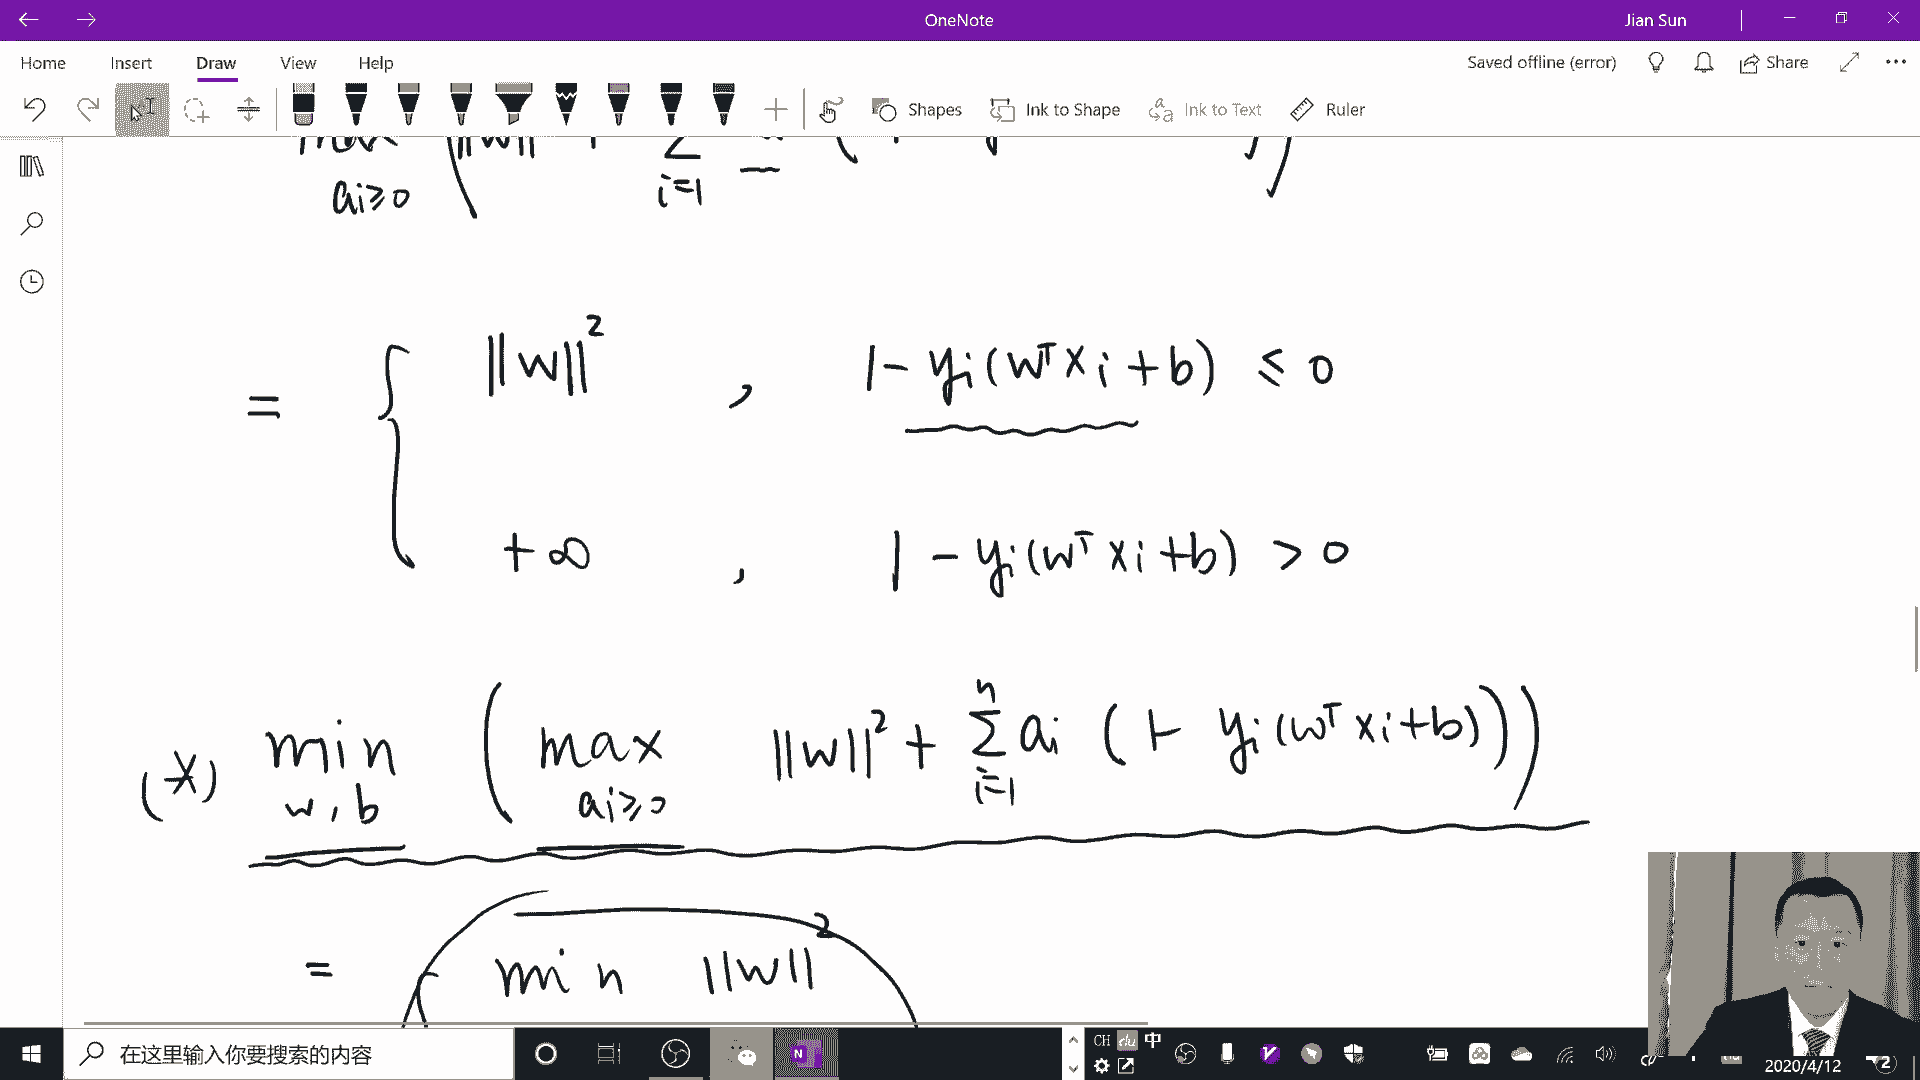 OneNote
Jian Sun
Home Insert Draw View Help
Saved offline (error)
Share
Shapes
Ink to Shape
Ink to Text
Ruler
ai≥0
i=1
= { ||w||² , 1- yi(wᵀxi+b) ≤ 0
+∞ , 1 - yi(wᵀxi+b) > 0
(*) min ( max ||w||² + Σ ai (1- yi(wᵀxi+b)))
w, b ai≥0 i=1 n
= min ||w||²
在这里输入你要搜索的内容
CH
中
2020/4/12
2